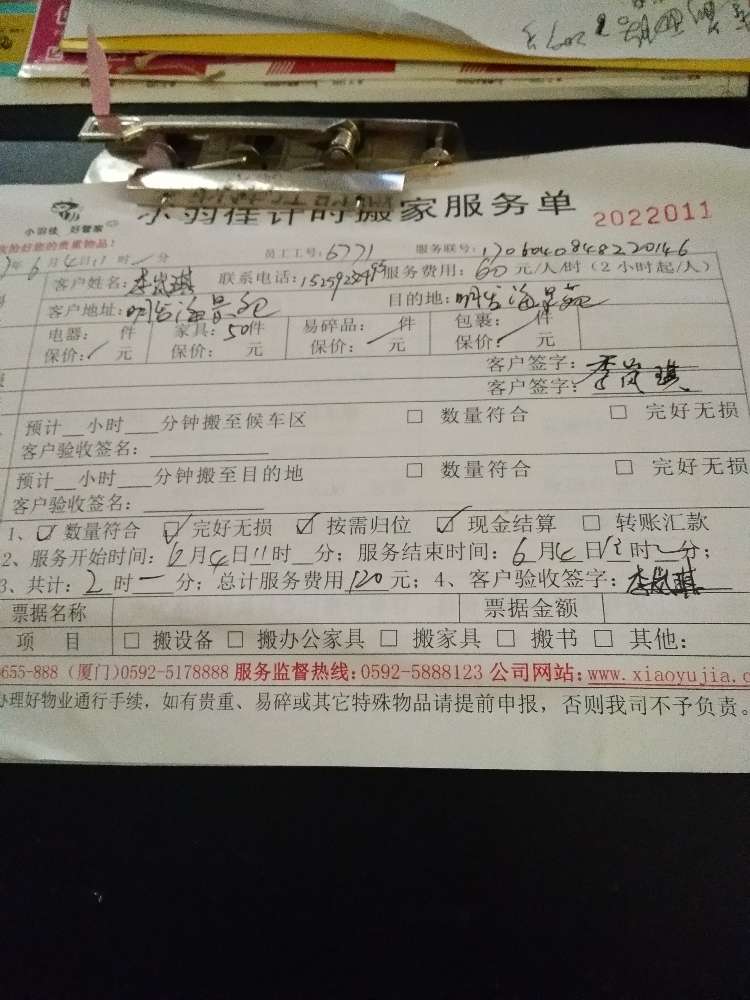 小羽佳 好管家
小羽佳计时搬家服务单 2022011
好您的贵重物品!
年6月4日11时一分 员工工号:6771 服务联号:1706040848220146
客户姓名:李岚琪 联系电话: 服务费用:60元/人/时(2小时起/人)
客户地址:明发海景苑 目的地:明发海景苑
电器: 件 家具:50件 易碎品: 件 包裹: 件
保价: 元 保价: 元 保价: 元 保价: 元
客户签字:李岚琪
客户签字:
预计__小时___分钟搬至候车区 □ 数量符合 □ 完好无损
客户验收签名:
预计__小时___分钟搬至目的地 □ 数量符合 □ 完好无损
客户验收签名:
1、☑ 数量符合 ☑ 完好无损 ☑ 按需归位 ☑ 现金结算 □ 转账汇款
2、服务开始时间:6月4日11时__分;服务结束时间:6月4日 时 分;
3、共计:2时一分;总计服务费用120元;4、客户验收签字:李岚琪
票据名称 票据金额
项 目 □ 搬设备 □ 搬办公家具 □ 搬家具 □ 搬书 □ 其他:
655-888 (厦门)0592-5178888 服务监督热线:0592-5888123 公司网站:www.xiaoyujia.c
办理好物业通行手续,如有贵重、易碎或其它特殊物品请提前申报,否则我司不予负责。